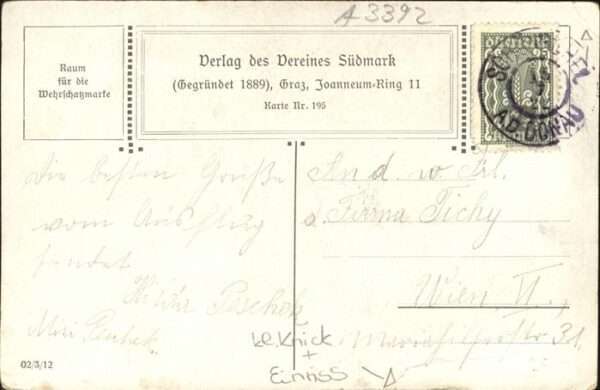 A 3392
Raum
für die
Wehrschatzmarke
Verlag des Vereines Südmark
(Gegründet 1889), Graz, Joanneum-Ring 11
Karte Nr. 195
A.D. DONAU
Die besten Grüße
vom Ausflug
sendet
And. w. Frl.
d. Firma Tichy
Wien VI.,
Mariahilferstr 31.
kl. Knick
+
Einriss
02/3/12